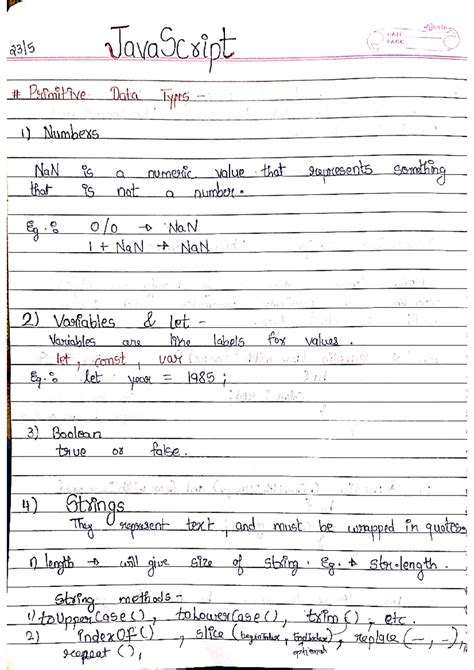 23/5
JavaScript
DATE
PAGE
# Primitive Data Types -
1) Numbers
NaN is a numeric value that represents something
that is not a number.
Eg.: 0/0 → NaN
1 + NaN → NaN
2) Variables & let -
Variables are like labels for values.
let, const, var
Eg.: let year = 1985;
3) Boolean
true or false.
4) Strings
They represent text, and must be wrapped in quotes
1) length → will give size of string. Eg. → str.length.
String methods -
1) toUpperCase(), toLowerCase(), trim(), etc.
2) indexOf(), slice(beginIndex, endIndex), replace(-, -),
optional
repeat(),